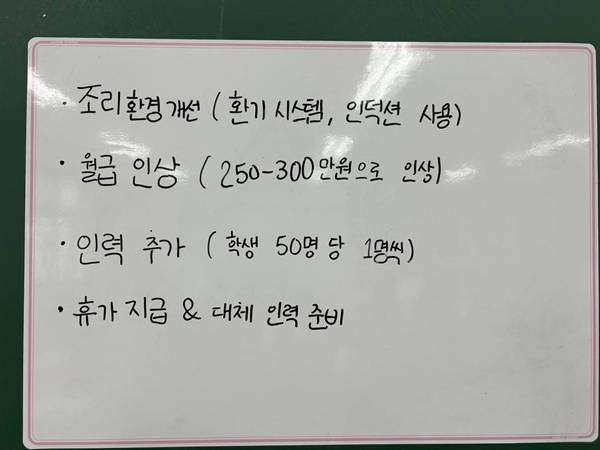 · 조리환경개선 (환기 시스템, 인덕션 사용)
· 월급 인상 (250-300만원으로 인상)
· 인력 추가 (학생 50명 당 1명씩)
· 휴가 지급 & 대체 인력 준비